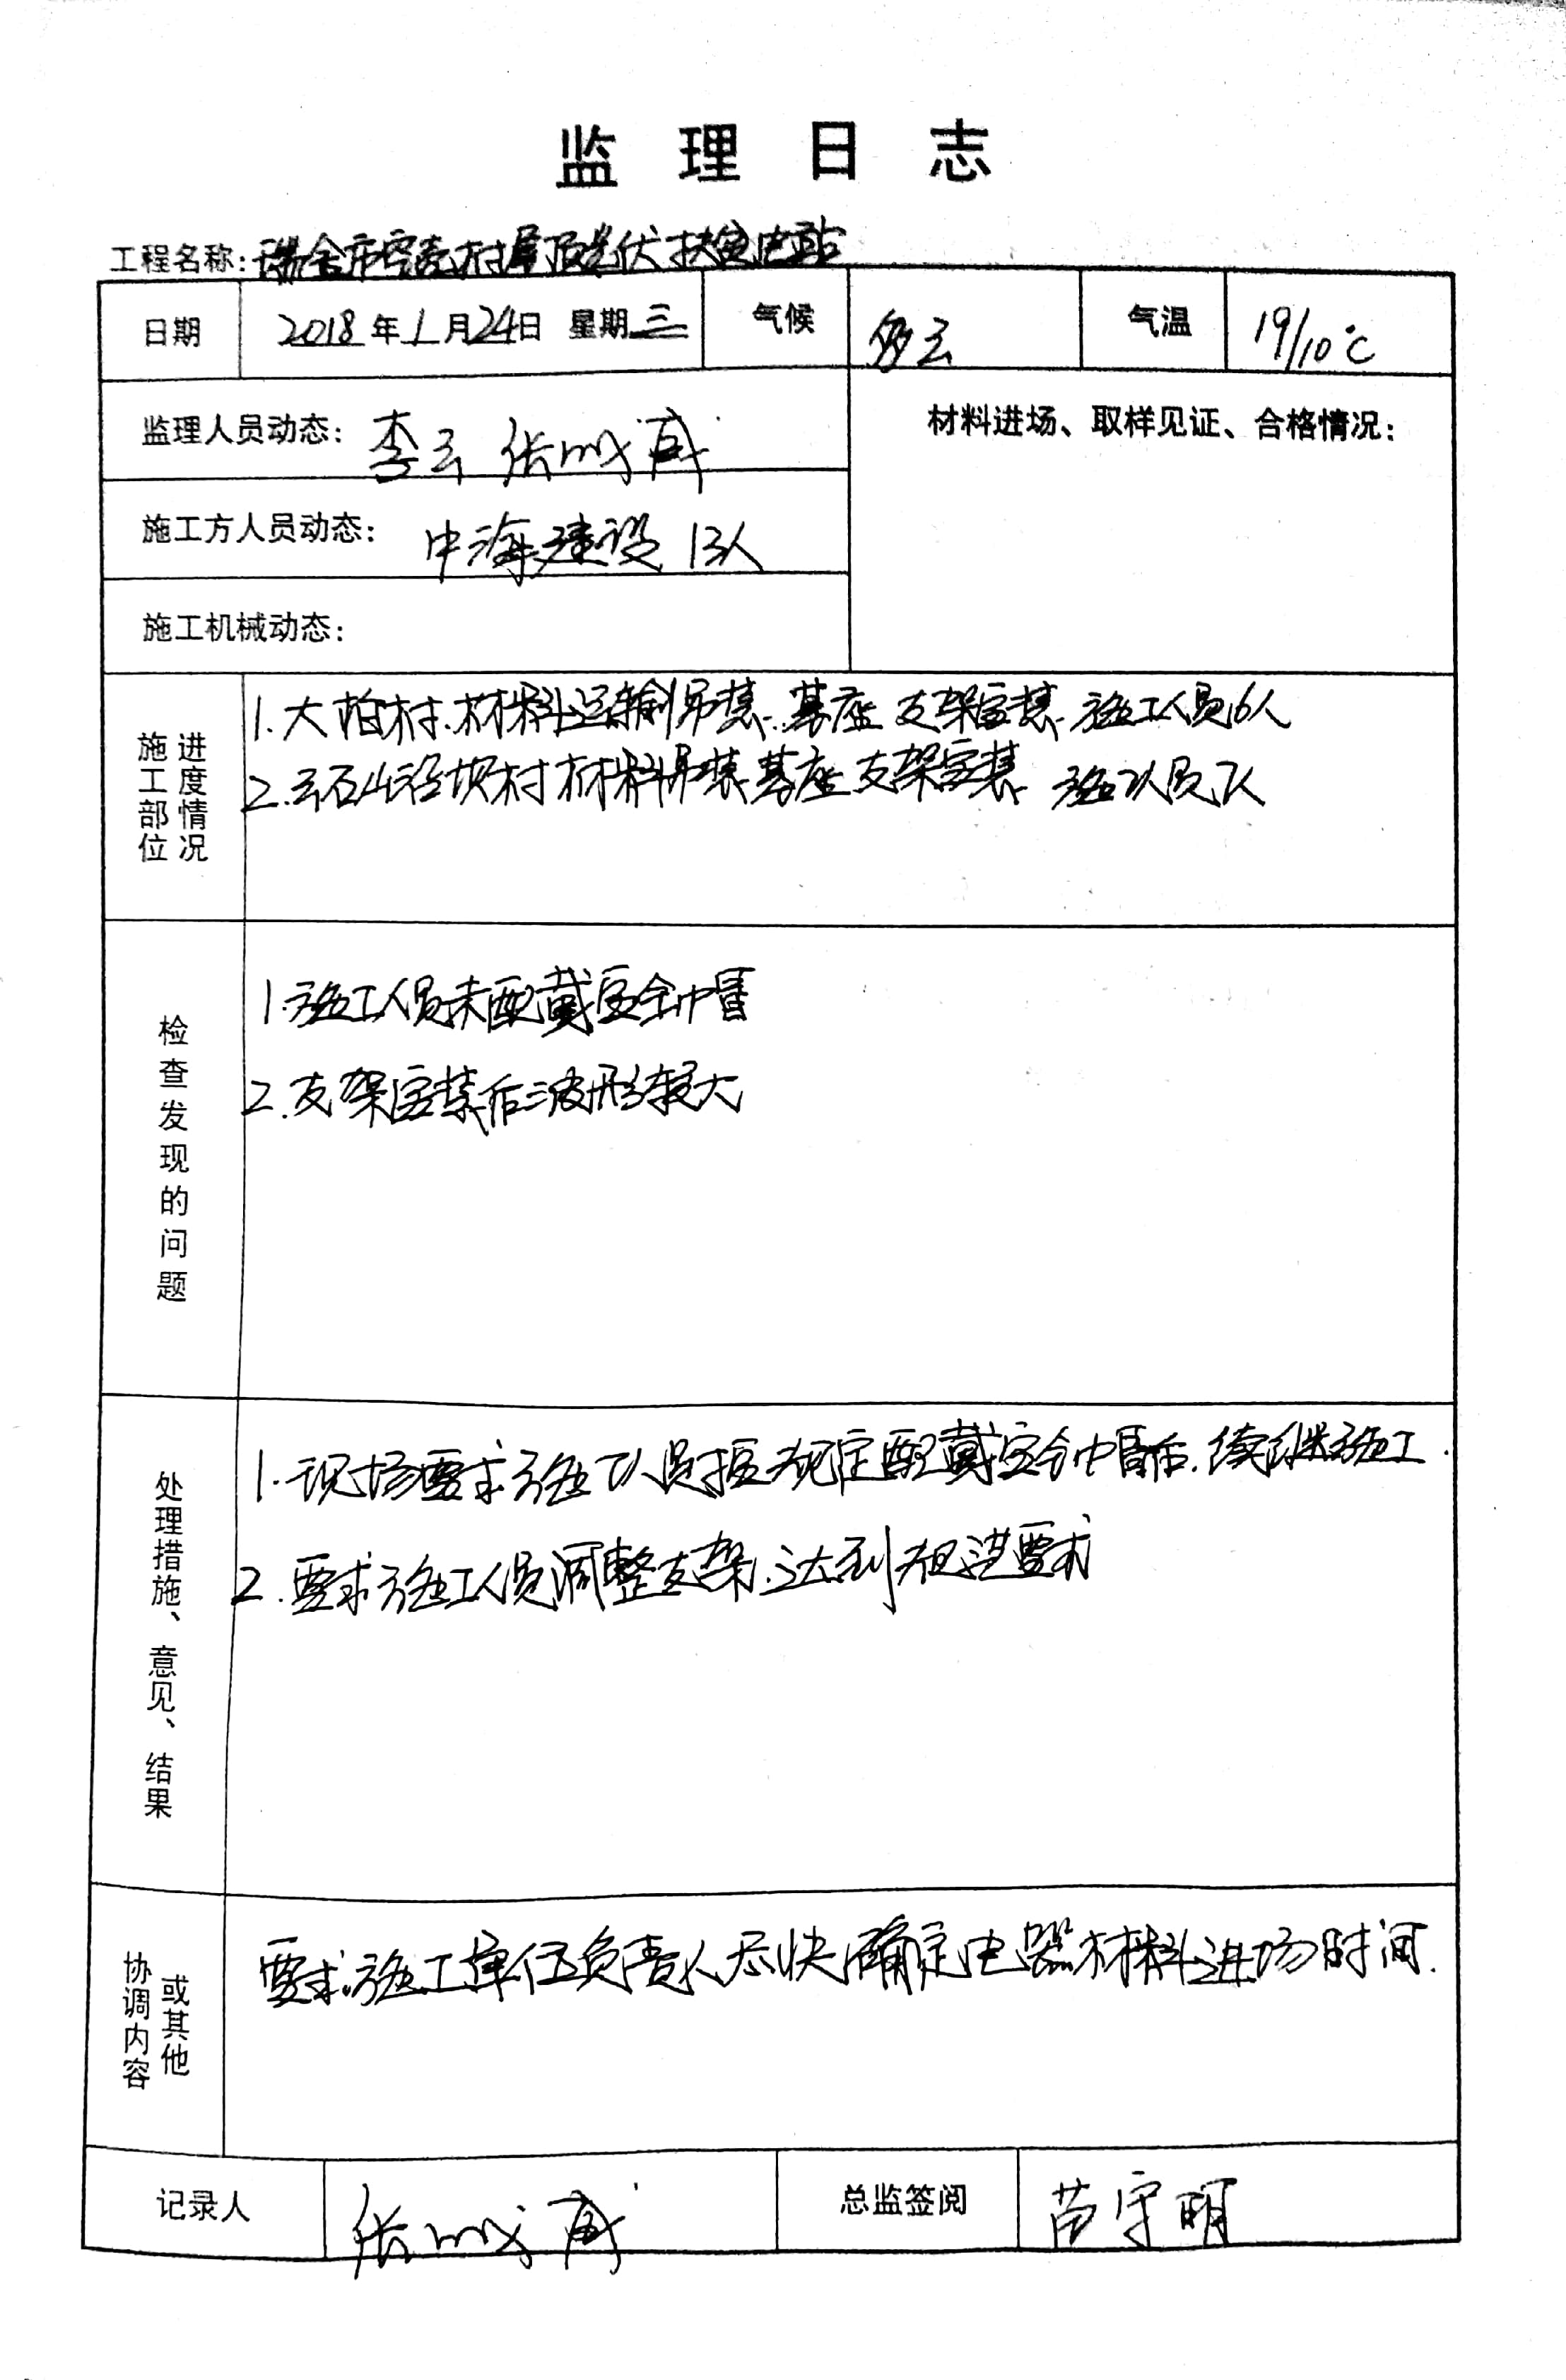 监理日志
工程名称:瑞金市空壳村屋顶光伏扶贫电站
日期 2018年1月24日 星期三 气候 多云 气温 19/10℃
监理人员动态: 李云 张 材料进场、取样见证、合格情况:
施工方人员动态: 中海建设 13人
施工机械动态:
施工部位 进度情况
1.大柏村.材料运输吊装.基座支架安装.施工人员6人
2.云石山沿坝村材料吊装基座支架安装.施工人员7人
检查发现的问题
1.施工人员未配戴安全帽
2.支架安装后波形较大
处理措施、意见、结果
1.现场要求施工人员按规定配戴安全帽后.续继施工.
2.要求施工人员调整支架.达到规范要求
协调内容 或其他
要求施工单位负责人尽快确定电器材料进场时间.
记录人 张 总监签阅 苗守明